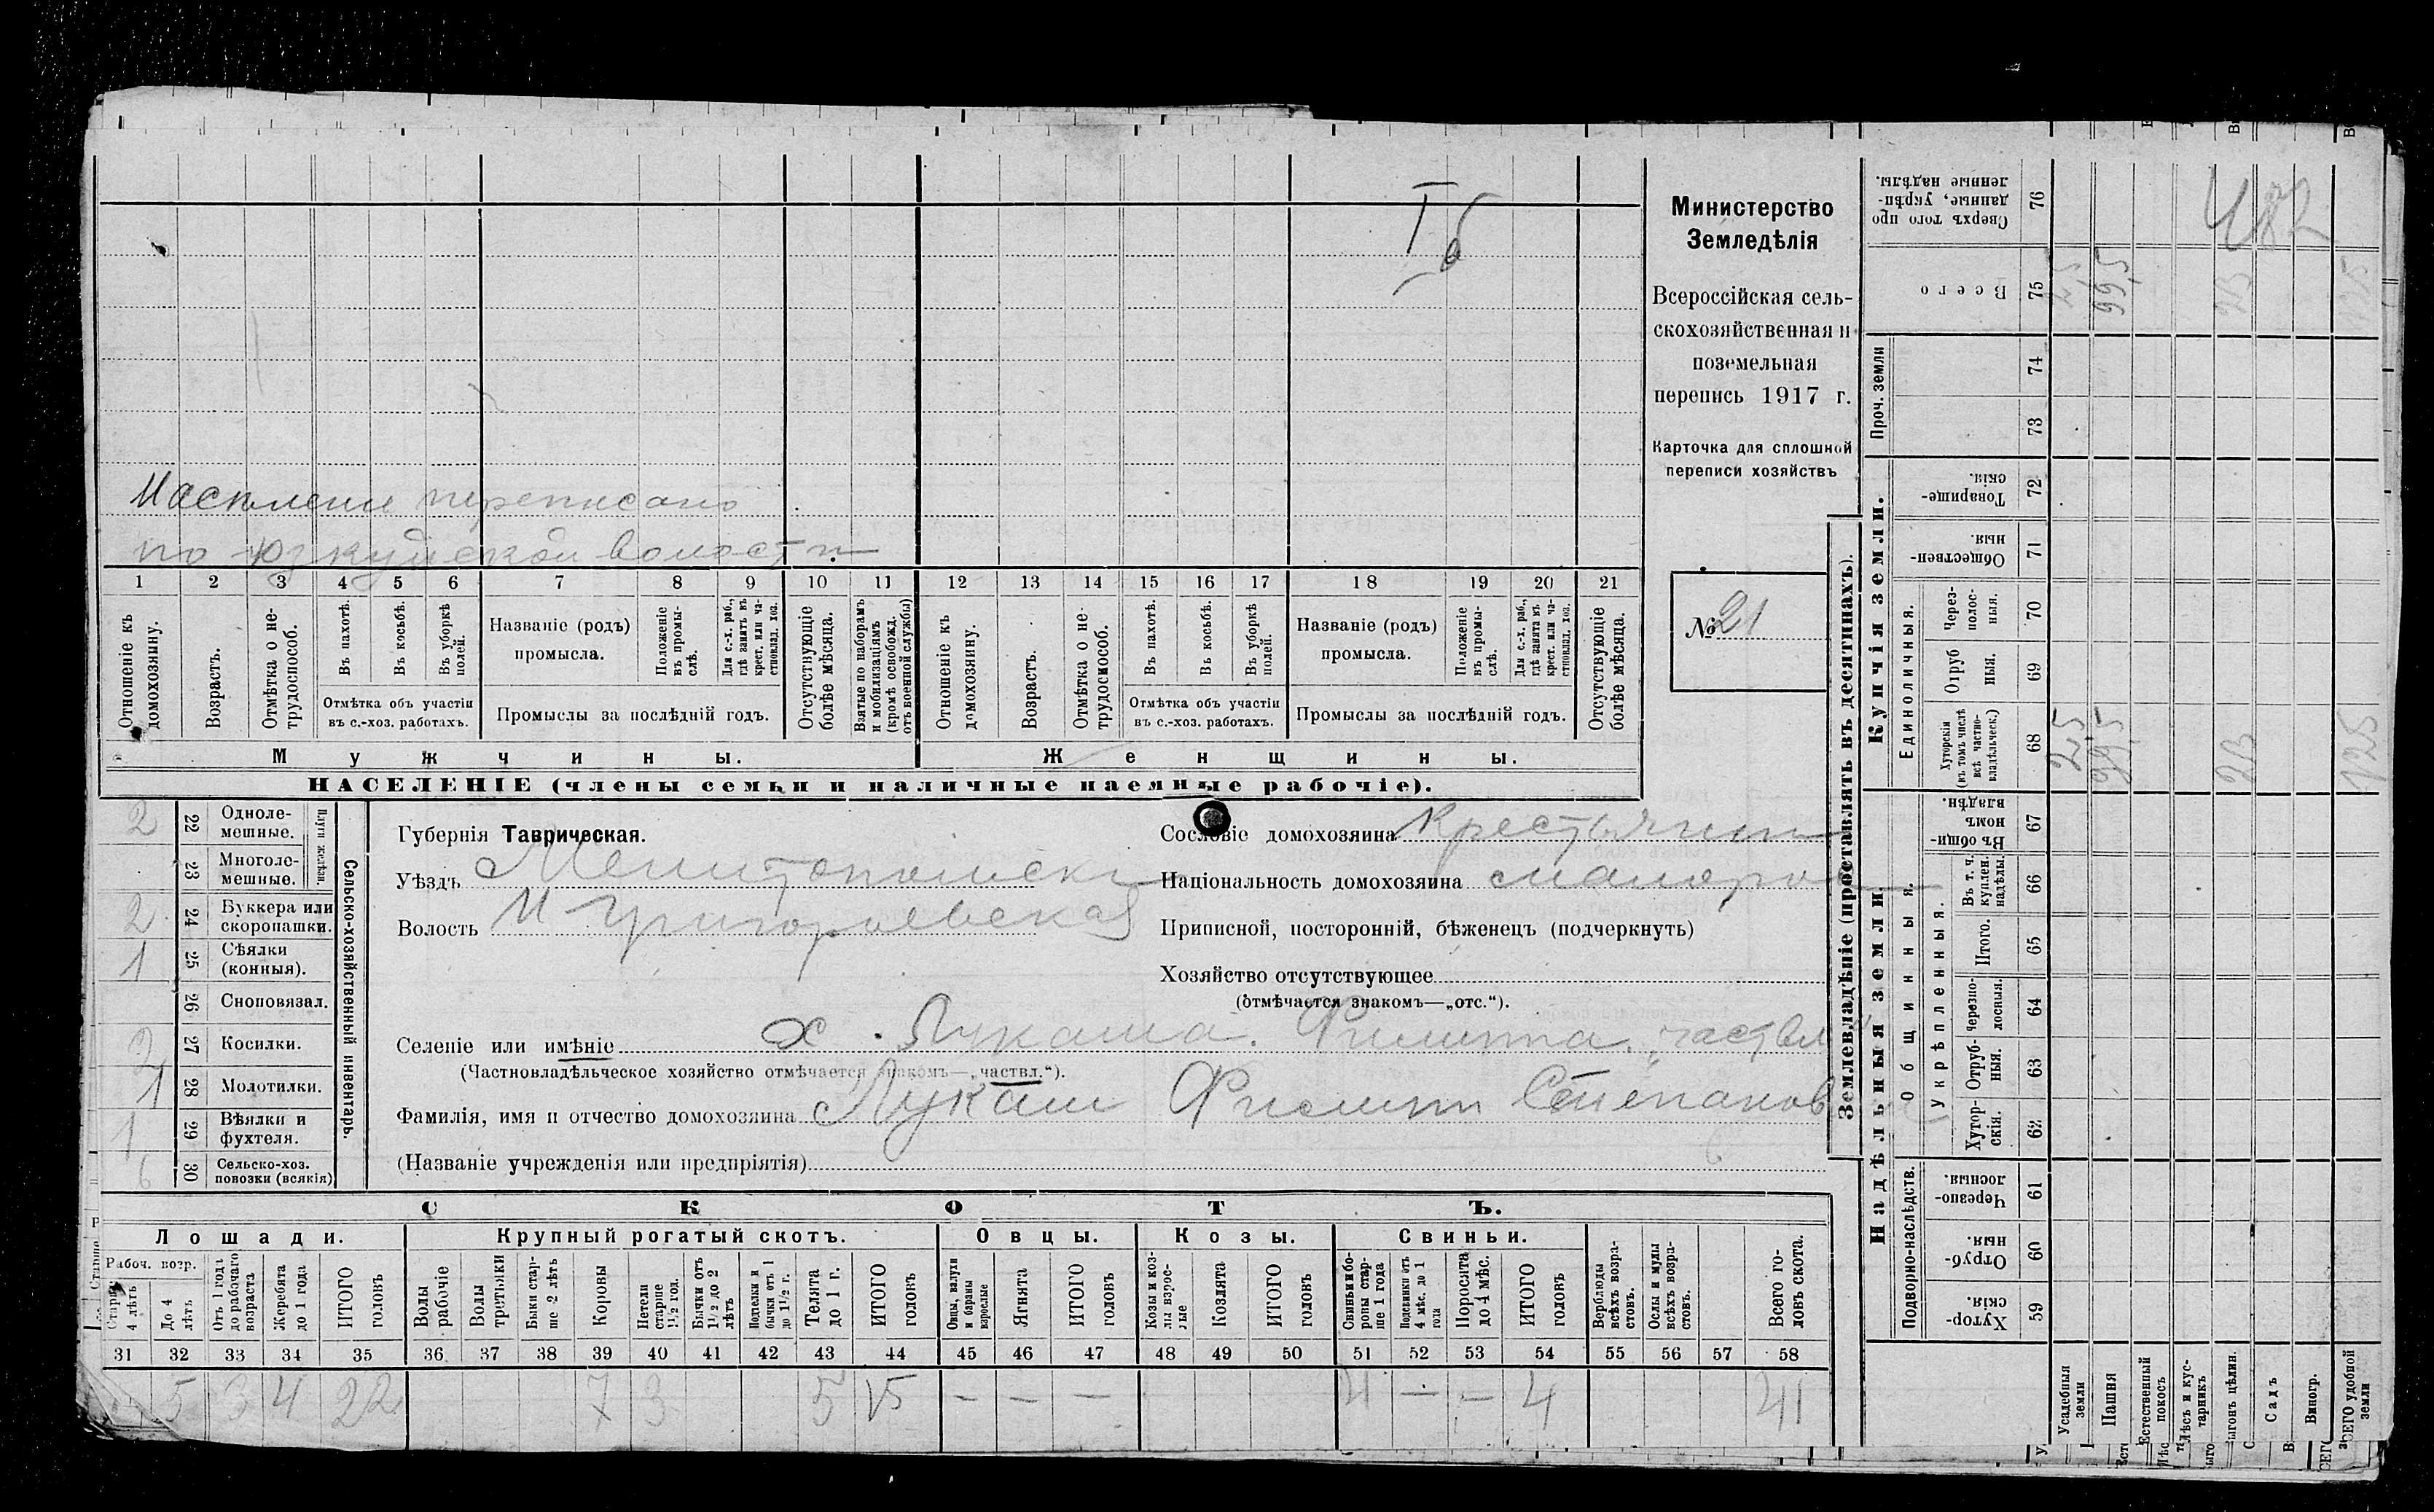 I б
Населеніе переписано
по Юзкуйской волости
1 2 3 4 5 6 7 8 9 10 11 12 13 14 15 16 17 18 19 20 21
Отношеніе къ домохозяину.
Возрастъ.
Отмѣтка о нетрудоспособ.
Въ пахотѣ.
Въ косьбѣ.
Въ уборкѣ полей.
Отмѣтка объ участіи
въ с.-хоз. работахъ.
Названіе (родъ)
промысла.
Положеніе въ промыслѣ.
Для с.-х. раб., гдѣ занятъ въ крест. или частновлад. хоз.
Промыслы за послѣдній годъ.
Отсутствующіе болѣе мѣсяца.
Взятые по наборамъ и мобилизаціямъ (кромѣ освобожд. отъ военной службы)
Отношеніе къ домохозяину.
Возрастъ.
Отмѣтка о нетрудоспособ.
Въ пахотѣ.
Въ косьбѣ.
Въ уборкѣ полей.
Отмѣтка объ участіи
въ с.-хоз. работахъ.
Названіе (родъ)
промысла.
Положеніе въ промыслѣ.
Для с.-х. раб., гдѣ занята въ крест. или частновлад. хоз.
Промыслы за послѣдній годъ.
Отсутствующіе болѣе мѣсяца.
Мужчины.
Женщины.
НАСЕЛЕНІЕ (члены семьи и наличные наемные рабочіе).
Министерство
Земледѣлія
Всероссійская сель-
скохозяйственная и
поземельная
перепись 1917 г.
Карточка для сплошной
переписи хозяйствъ
№ 21
Сельско-хозяйственный инвентарь.
Плуги желѣзн.
2 22 Одноле-
мешные.
23 Многоле-
мешные.
2 24 Буккера или
скоропашки.
1 25 Сѣялки
(конныя).
26 Сноповязал.
2 27 Косилки.
1 28 Молотилки.
1 29 Вѣялки и
фухтеля.
6 30 Сельско-хоз.
повозки (всякія)
Губернія Таврическая.
Уѣздъ Мелитопольскій
Волость Н Григорьевская
Сословіе домохозяина Крестьянин
Національность домохозяина малорос
Приписной, посторонній, бѣженецъ (подчеркнуть)
Хозяйство отсутствующее
(отмѣчается знакомъ—„отс.“).
Селеніе или имѣніе х. Лукаша Филиппа „частвл
(Частновладѣльческое хозяйство отмѣчается знакомъ—„частвл.“).
Фамилія, имя и отчество домохозяина Лукаш Филипп Степанов
(Названіе учрежденія или предпріятія)
СКОТЪ.
Лошади. Крупный рогатый скотъ. Овцы. Козы. Свиньи.
Рабоч. возр.
Старше 4 лѣтъ
До 4 лѣтъ
Отъ 1 года до рабочаго возраста
Жеребята до 1 года
ИТОГО головъ
Волы рабочіе
Волы третьяки
Быки старше 2 лѣтъ
Коровы
Нетели старше 1½ год.
Бычки отъ 1½ до 2 лѣтъ
Подтелки и бычки отъ 1 до 1½ г.
Телята до 1 г.
ИТОГО головъ
Овцы, валухи и бараны взрослые
Ягнята
ИТОГО головъ
Козы и козлы взрослые
Козлята
ИТОГО головъ
Свиньи и боровы старше 1 года
Подсвинки отъ 4 мѣс. до 1 года
Поросята до 4 мѣс.
ИТОГО головъ
Верблюды всѣхъ возрастовъ.
Ослы и мулы всѣхъ возрастовъ.
Всего головъ скота.
31 32 33 34 35 36 37 38 39 40 41 42 43 44 45 46 47 48 49 50 51 52 53 54 55 56 57 58
5 3 4 22 7 3 5 15 — — — 4 — — 4 41
Землевладѣніе (проставлять въ десятинахъ).
Надѣльныя земли.
Купчія земли.
Проч. земли
Подворно-наслѣдств.
Общинныя.
Укрѣпленныя.
Единоличныя.
Сверхъ того про
данные, укрѣп-
ленные надѣлы. 76
Всего 75
74
73
Товарище-
скія. 72
Обществен-
ныя. 71
Через-
полос-
ныя. 70
Отруб
ныя. 69
Хуторскія
(въ томъ числѣ
всѣ частно-
владѣльческ.) 68
Въ общин-
номъ
владѣн. 67
Въ т. ч.
куплен.
надѣлы. 66
Итого. 65
Черезпо-
лосныя. 64
Отруб-
ныя. 63
Хутор-
скія. 62
Черезпо-
лосныя. 61
Отруб-
ныя. 60
Хутор-
скія. 59
Усадебныя земли
Пашня
Естественный покосъ
Лѣсъ и кустарникъ
Выгонъ цѣлин.
Садъ
Виногр.
ВСЕГО удобной земли
482
2,5 99,5 23 125
2,5 99,5 23 125